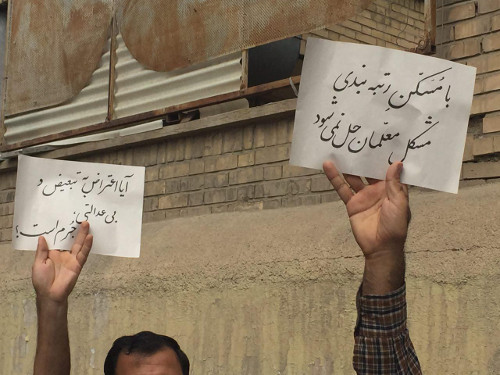 با مُسَکّن رتبه بندی
مشکل معلّمان حل نمی شود
آیا اعتراض به تبعیض و
بی عدالتی
جُرم است؟